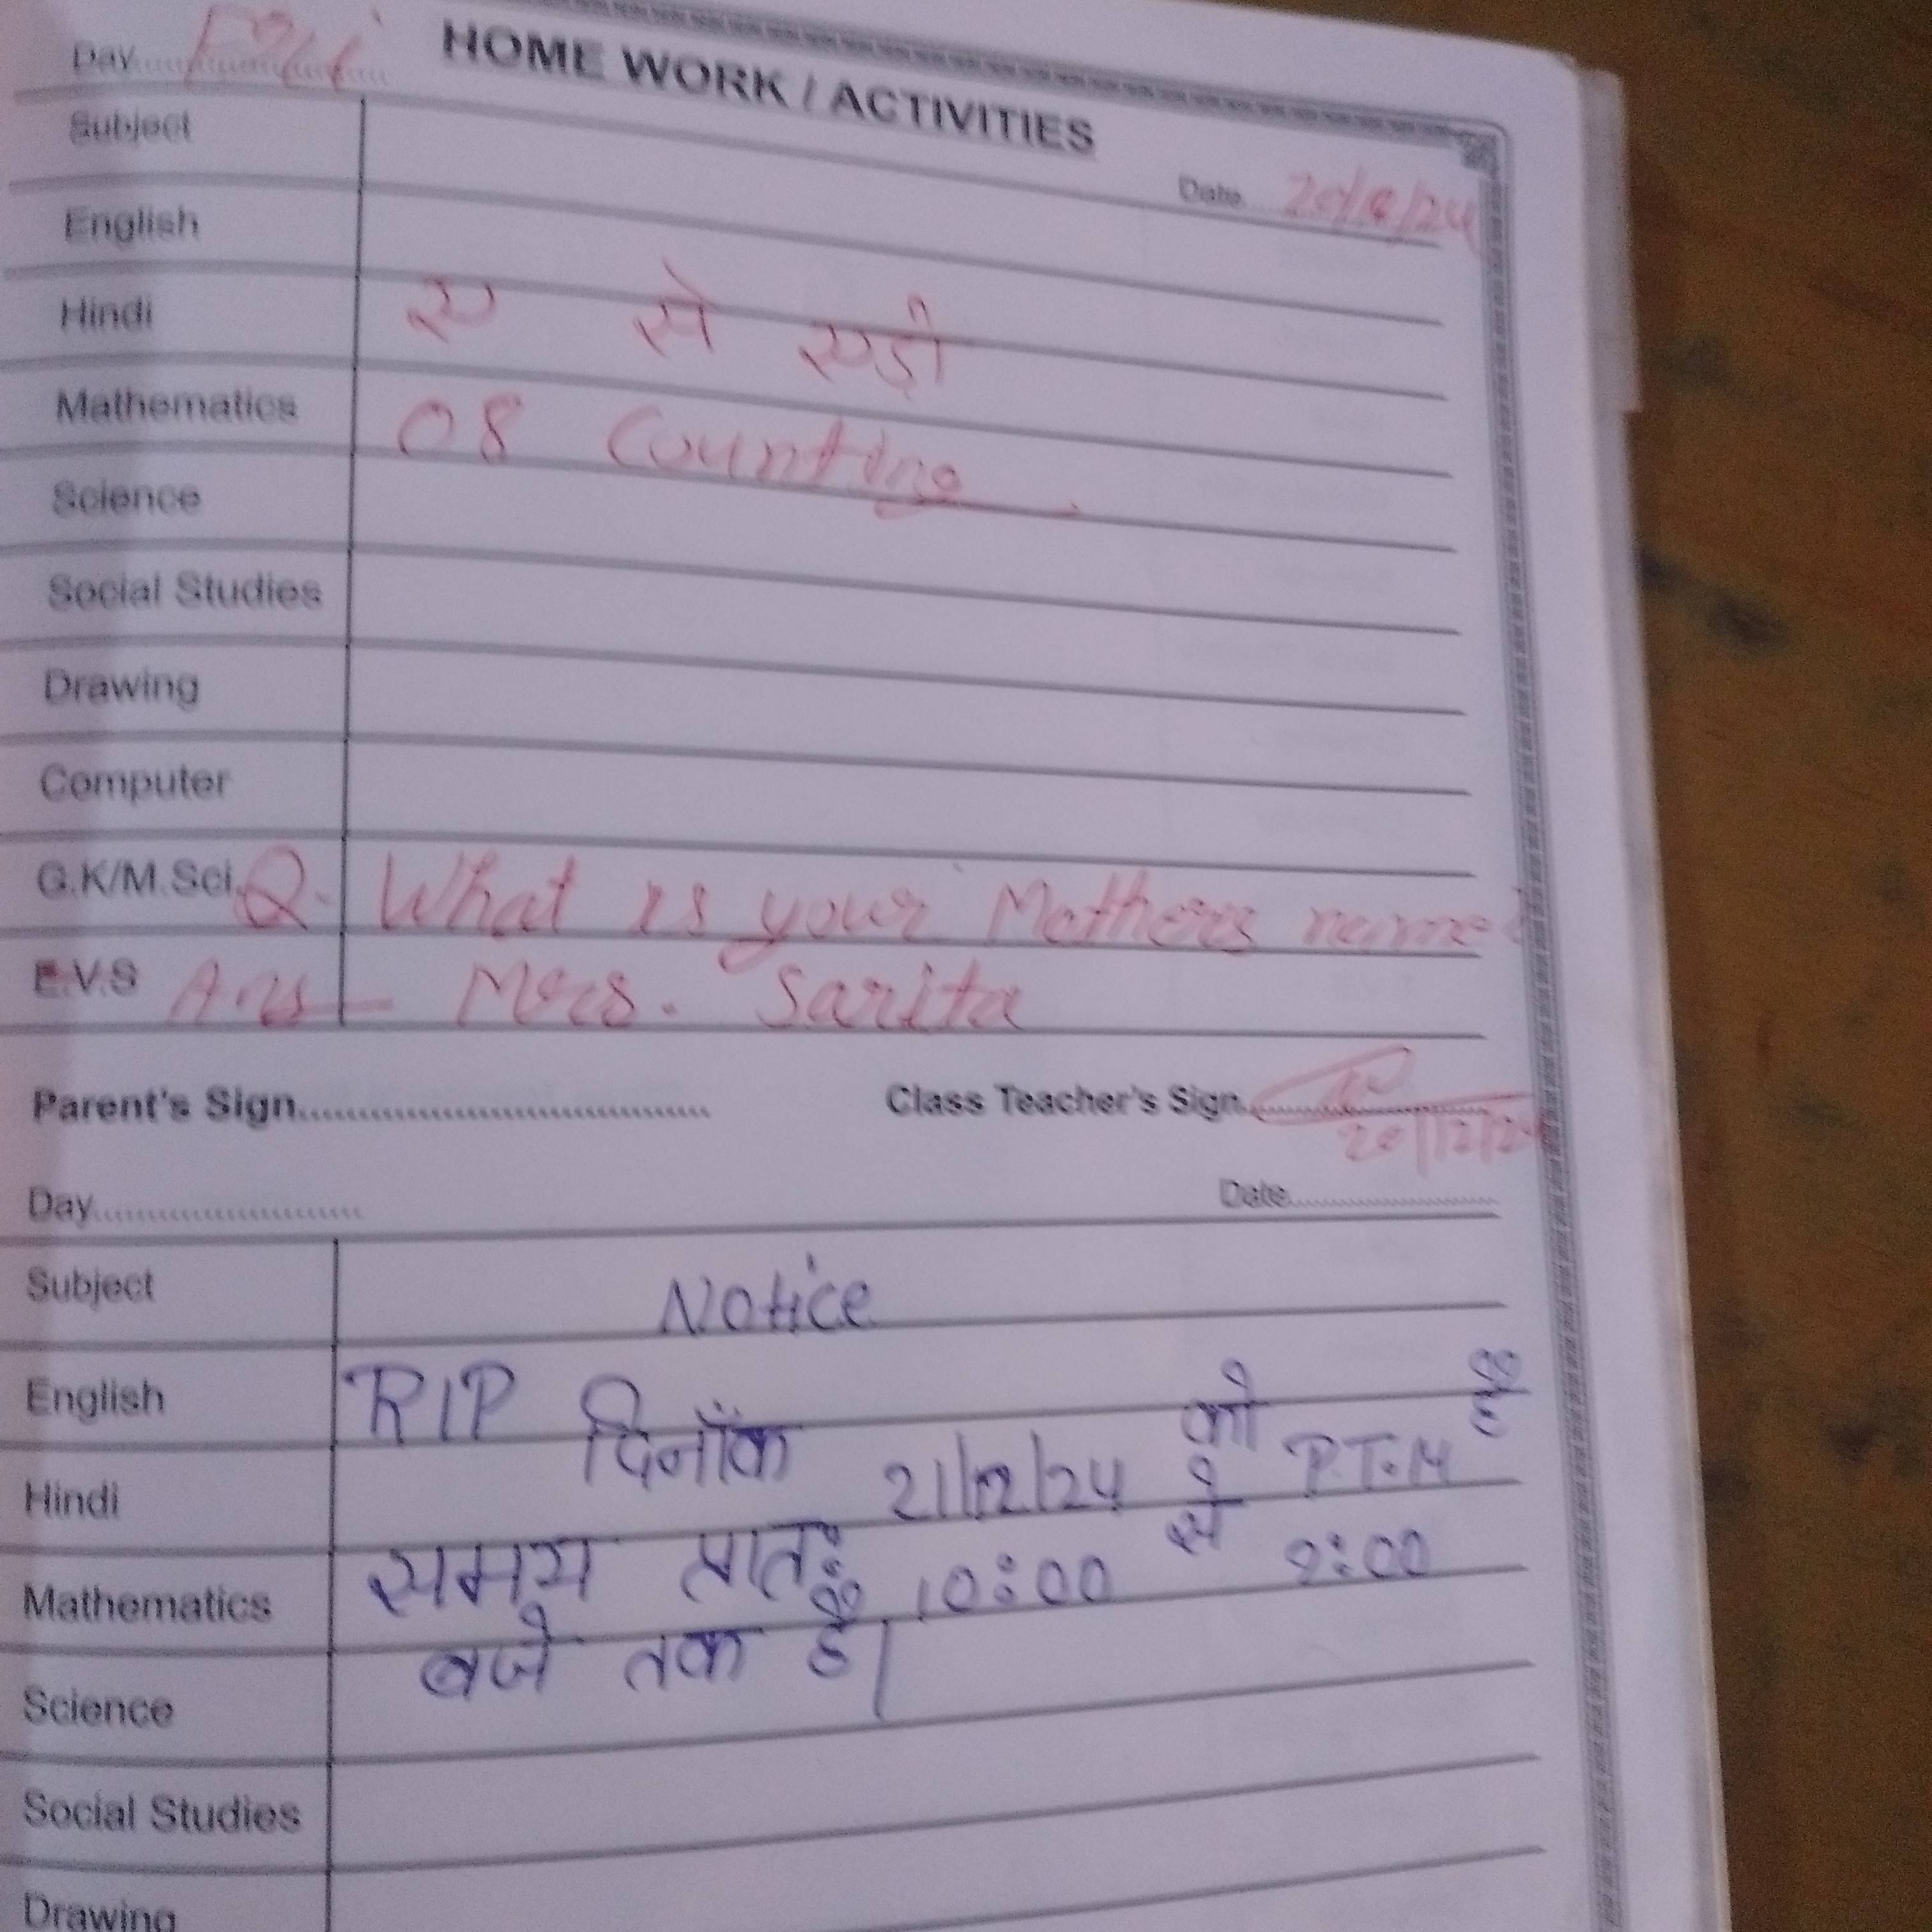 Day Fri HOME WORK / ACTIVITIES
Subject
Date 20/12/24
English
Hindi ए से एड़ी
Mathematics 08 Counting
Science
Social Studies
Drawing
Computer
G.K/M.Sci. Q. What is your Mothers name
E.V.S Ans - Mrs. Sarita
Parent's Sign Class Teacher's Sign
20/12/24
Day Date
Subject Notice
English R/P दिनाँक 21/12/24 को P.T.M है
Hindi
Mathematics समय प्रातः 10:00 से 2:00
Science बजे तक है।
Social Studies
Drawing